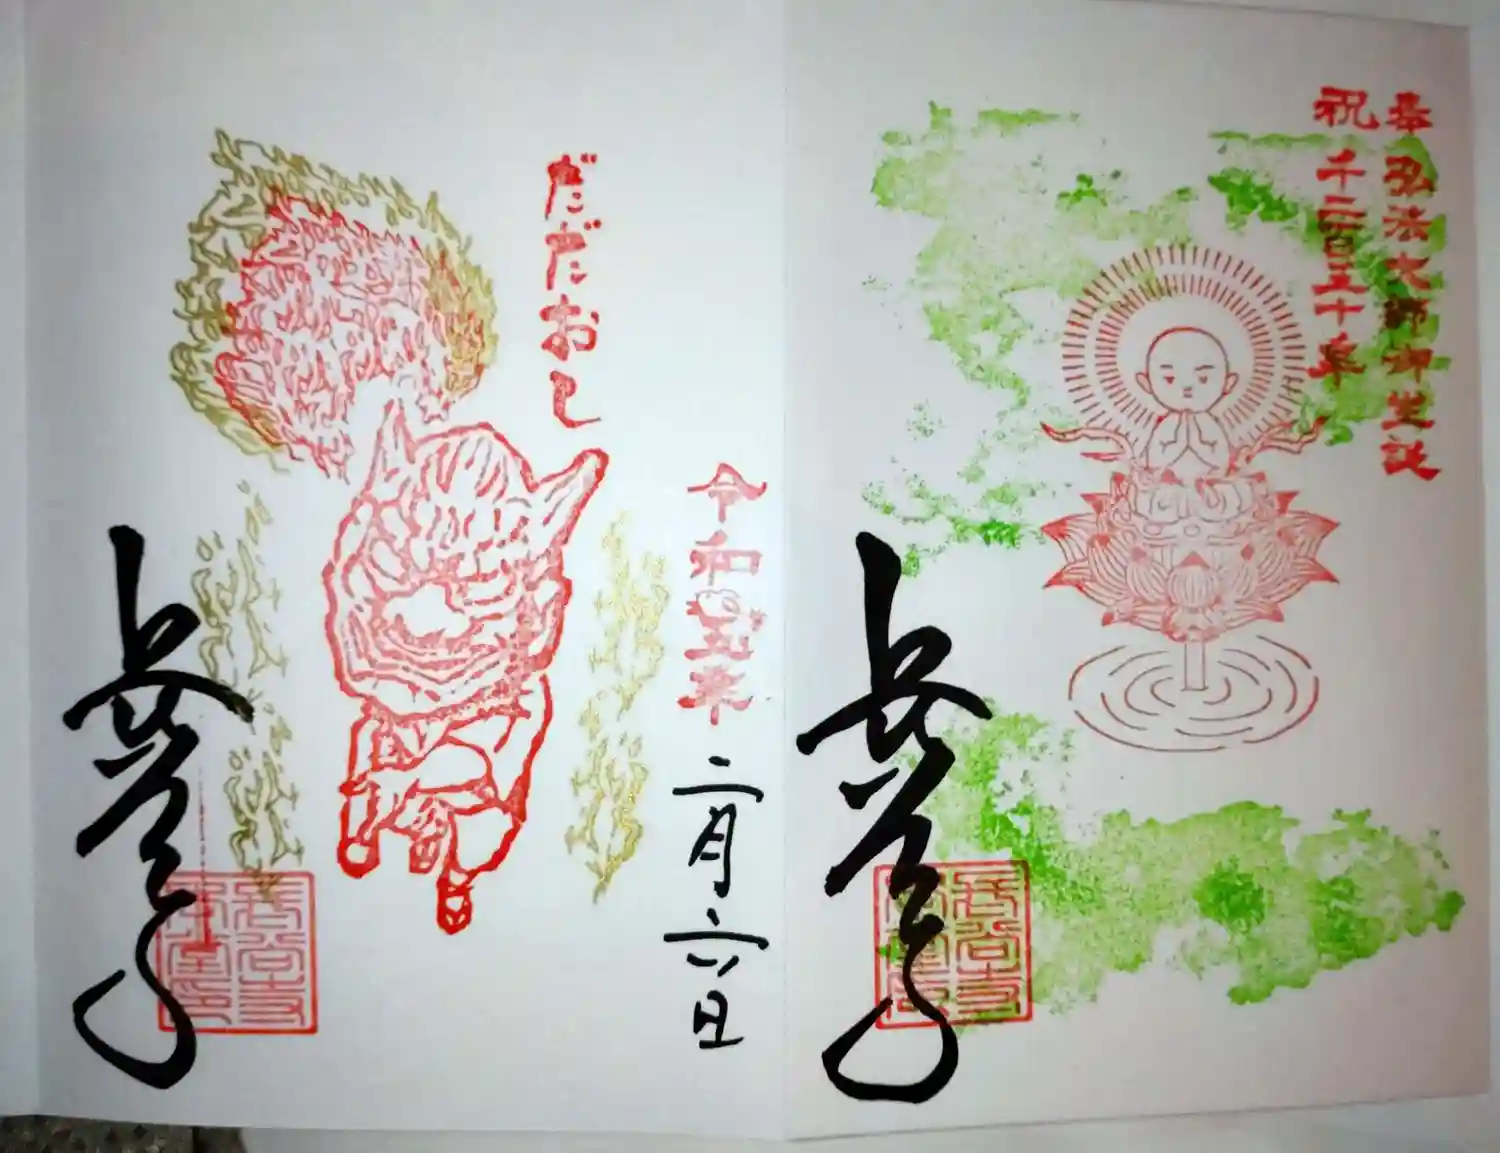 奉弘法大師御生誕
祝千二百五十年
長谷寺
だだおし
令和五年
二月六日
長谷寺